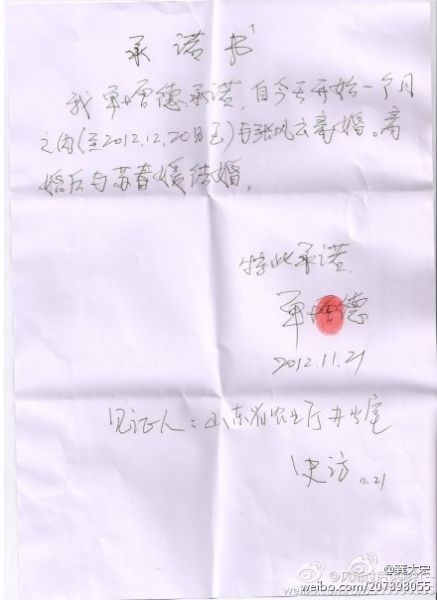 承诺书
我单增德承诺,自今天开始一个月
之内(至2012.12.20日至)与张风云离婚。离
婚后与苏春媛结婚,
特此承诺
单增德
2012.11.21
见证人:山东省农业厅办公室
史访 11.21
weibo.com/207898055